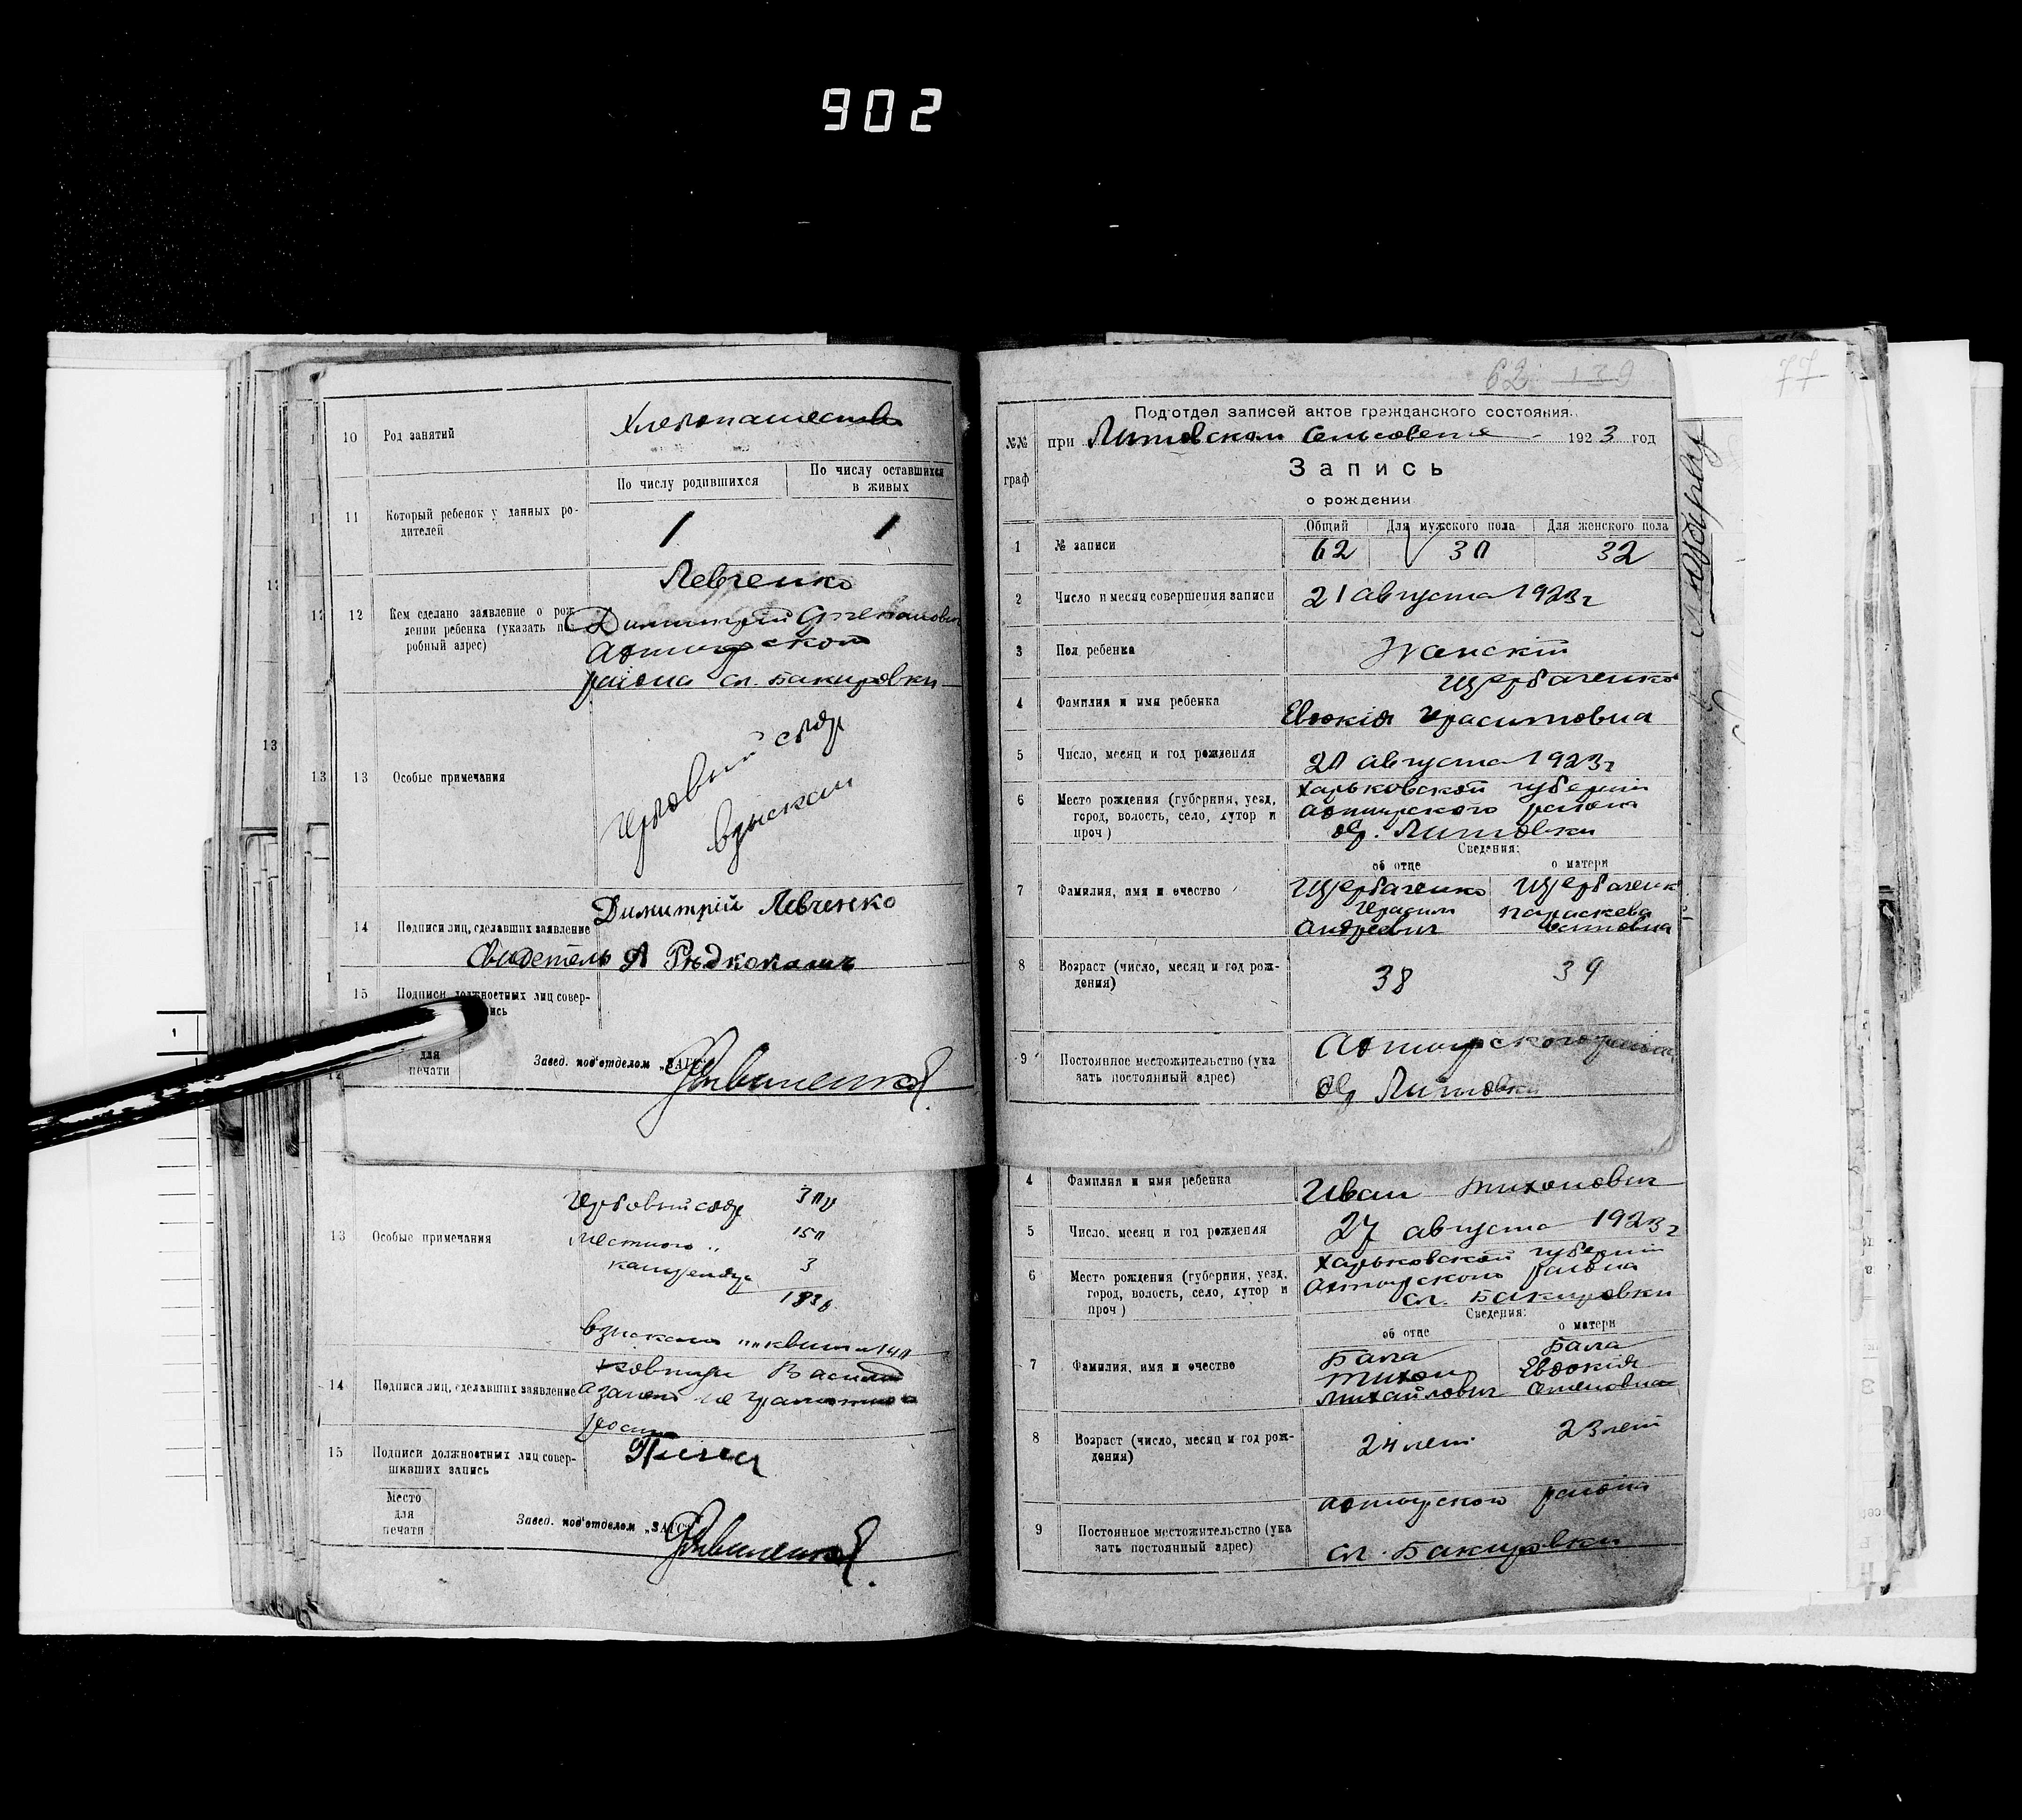 902
77
10 Род занятий
По числу родившихся
По числу оставшихся в живых
11 Который ребенок у данных ро-
дителей
1 1
Левченко
12 Кем сделано заявление о рож
дении ребенка (указать
робный адрес)
Димитрій Степанович
района сл. Бакировки
13 Особые примечания
Гербовый сбор
взыскан
14 Подписи лиц, сделавших заявление
Димитрій Левченко
Свидетель А
15 Подписи должностных лиц совер-
для
печати
Завед. под'отделом „ЗАГС"
Гербовый сбор
13 Особые примечания
местного "
150
3
14 Подписи лиц, сделавших заявление
Васили
15 Подписи должностных лиц совер-
шивших запись
Место
для
печати
Завед. под'отделом „ЗАГС"
62 139
Под'отдел записей актов гражданского состояния.
№№ граф
при Литовском Сельсовете 1923 год
Запись
о рождении
Общий Для мужского пола Для женского пола
1 № записи 62 30 32
2 Число и месяц совершения записи 21 августа 1923 г
3 Пол ребенка Женскій
Щербаченко
4 Фамилия и имя ребенка
Евдокія Герасимовна
5 Число, месяц и год рождения 20 августа 1923 г
6 Место рождения (губерния, уезд,
город, волость, село, хутор и
проч)
Харьковской губерніи
Ахтырского района
Литовки
Сведения:
об отце о матери
7 Фамилия, имя и очество
Щербаченко
Герасим
Андреевич
Щербаченк
Параскева
8 Возраст (число, месяц и год рож-
дения)
38 39
9 Постоянное местожительство (ука
зать постоянный адрес)
Ахтырского района
Литовки
4 Фамилия и имя ребенка Иван Тихонович
5 Число, месяц и год рождения 27 августа 1923 г
6 Место рождения (губерния, уезд,
город, волость, село, хутор и
проч)
Харьковской губерніи
Ахтырского района
сл. Бакировки
Сведения:
об отце о матери
7 Фамилия, имя и очество
Бала
Тихон
Михайлович
Бала
Евдокія
Семеновна
8 Возраст (число, месяц и год рож-
дения)
24 лет 23 лет
Ахтырского района
9 Постоянное местожительство (ука
зать постоянный адрес)
сл. Бакировки